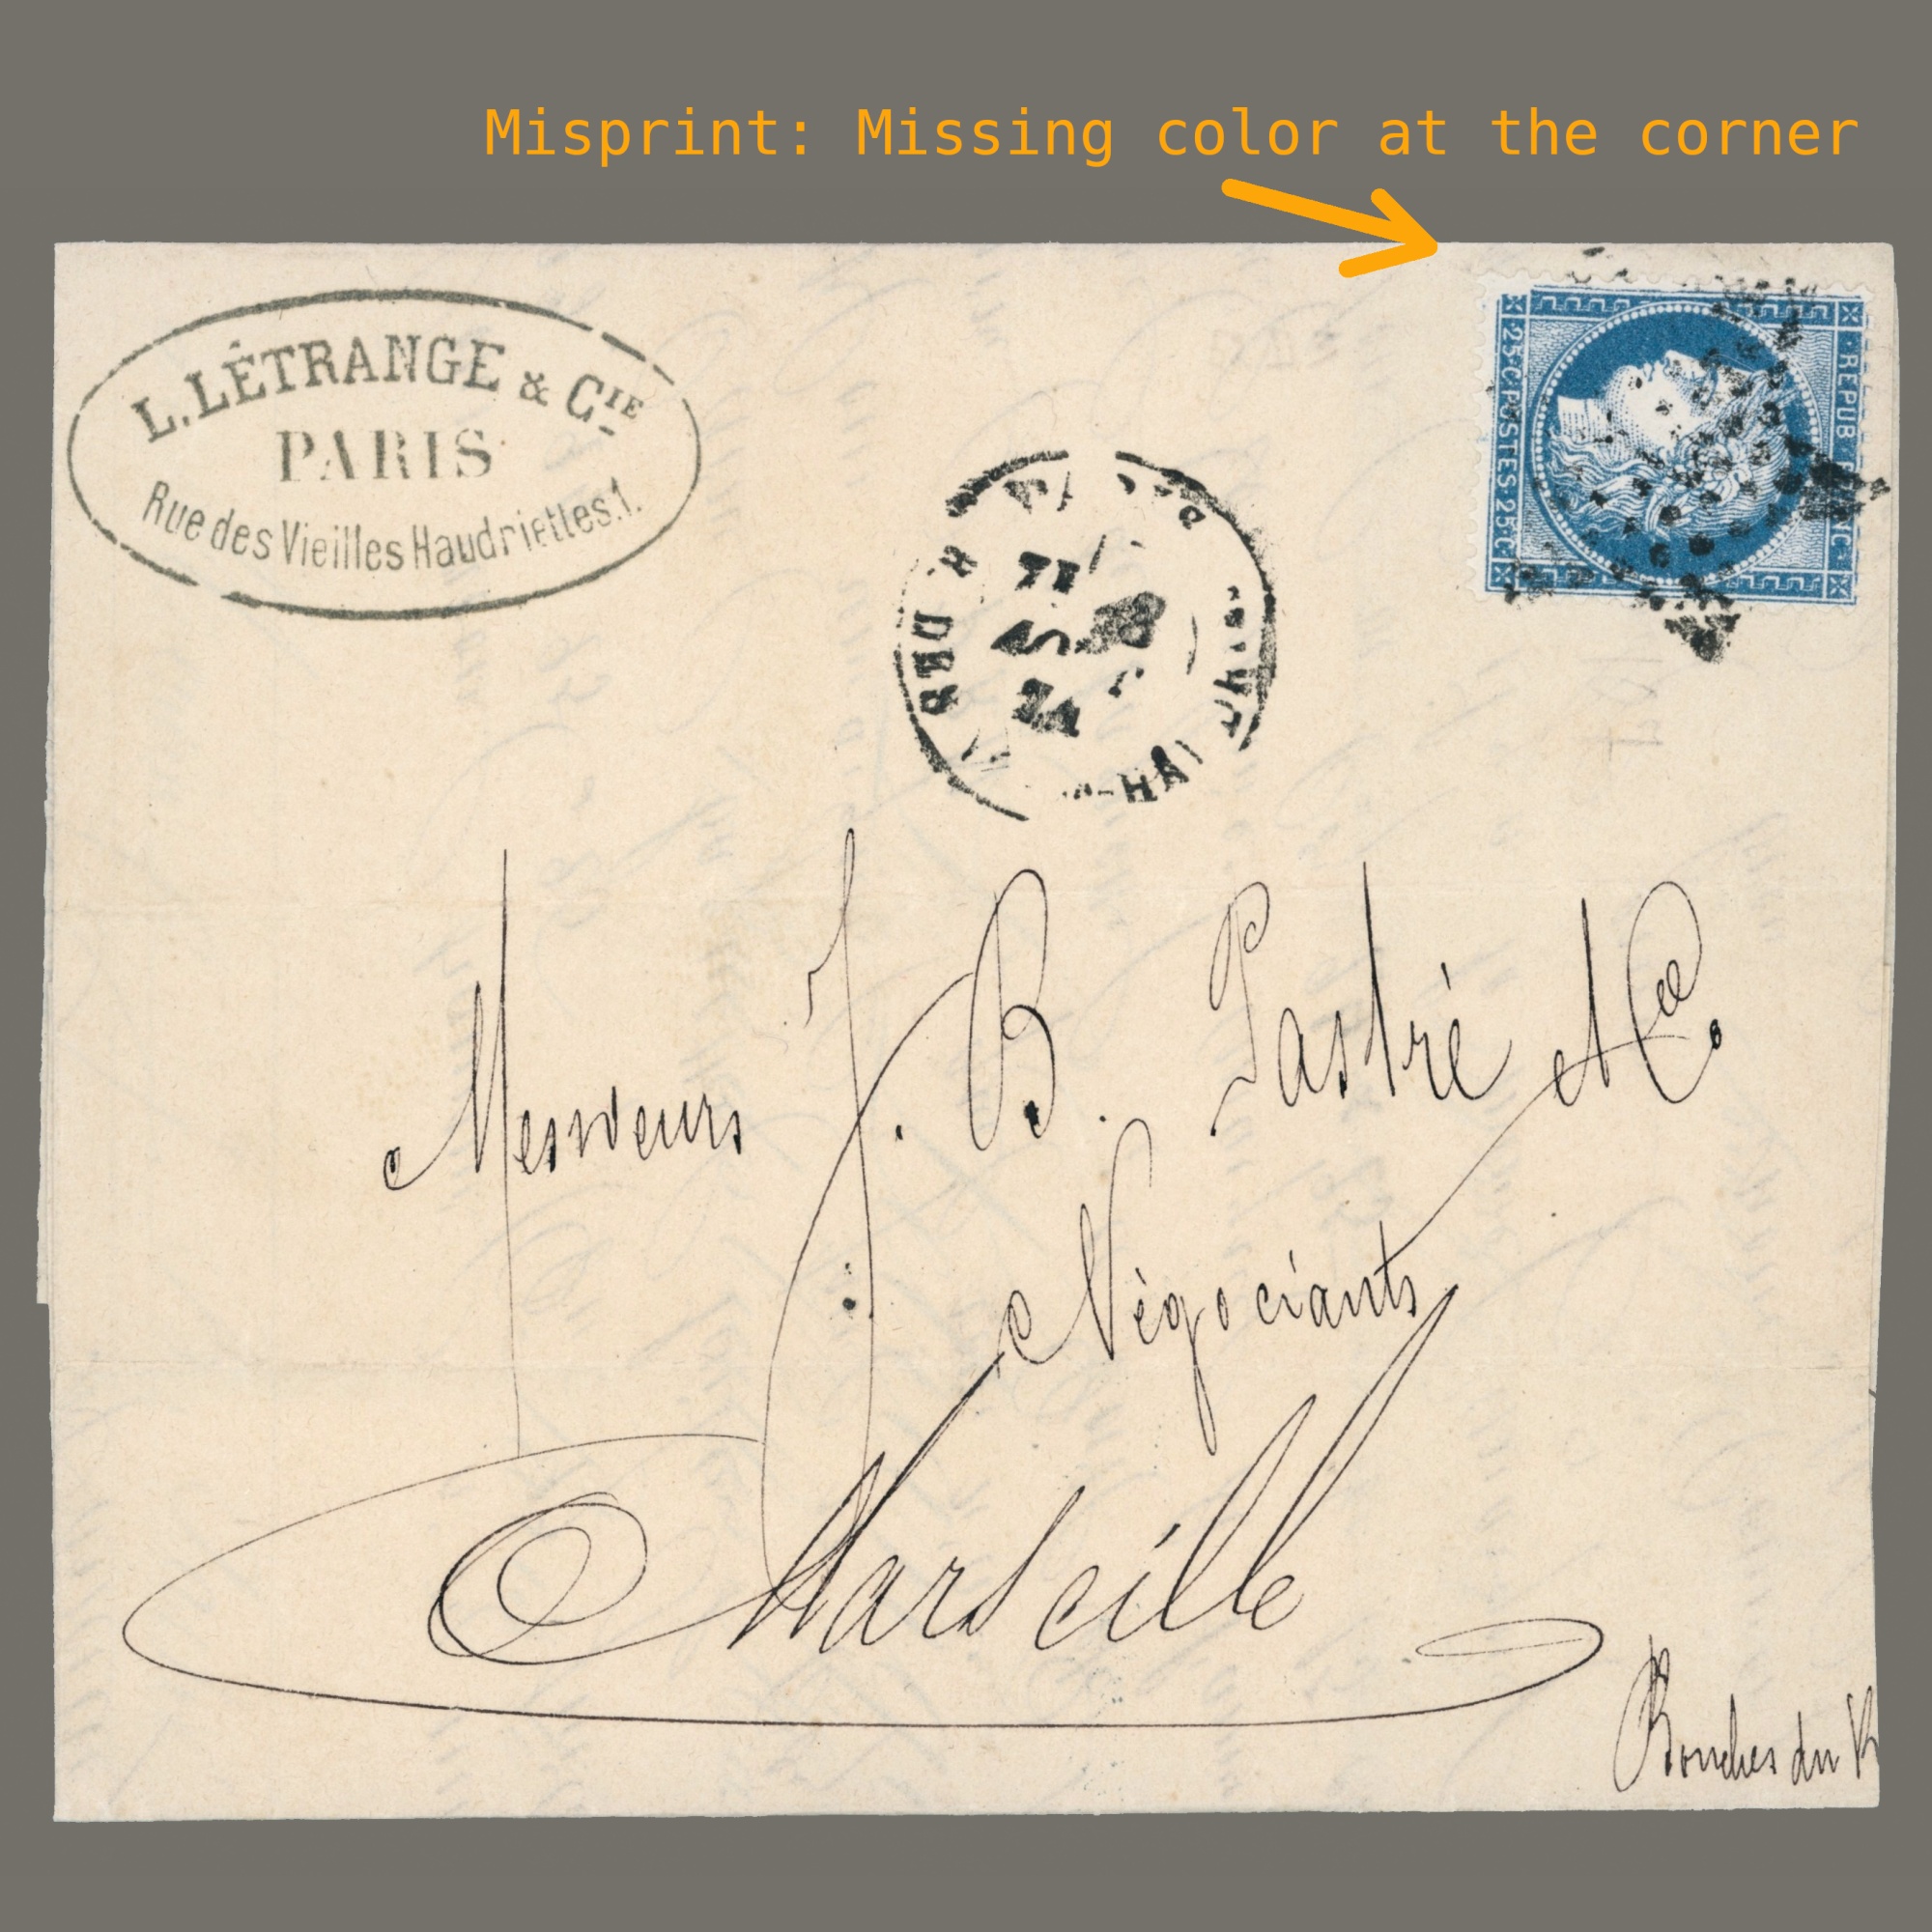 Misprint: Missing color at the corner
L. LÉTRANGE & CIE
PARIS
Rue des Vieilles Haudriettes.1.
25·C·POSTES·25·C
REPUB FRANC·
R. DES
Messieurs J. B. Pastré & Cie.
Négociants
Marseille
Bouches du R